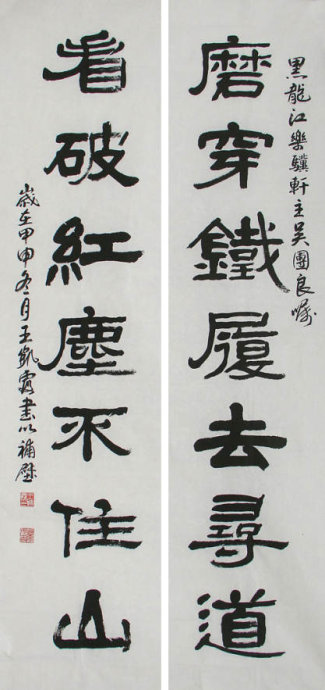 黑龍江樂驥軒主吳團良囑
磨穿鐵履去尋道
看破紅塵不住山
歲在甲申冬月王凱霞書以補壁